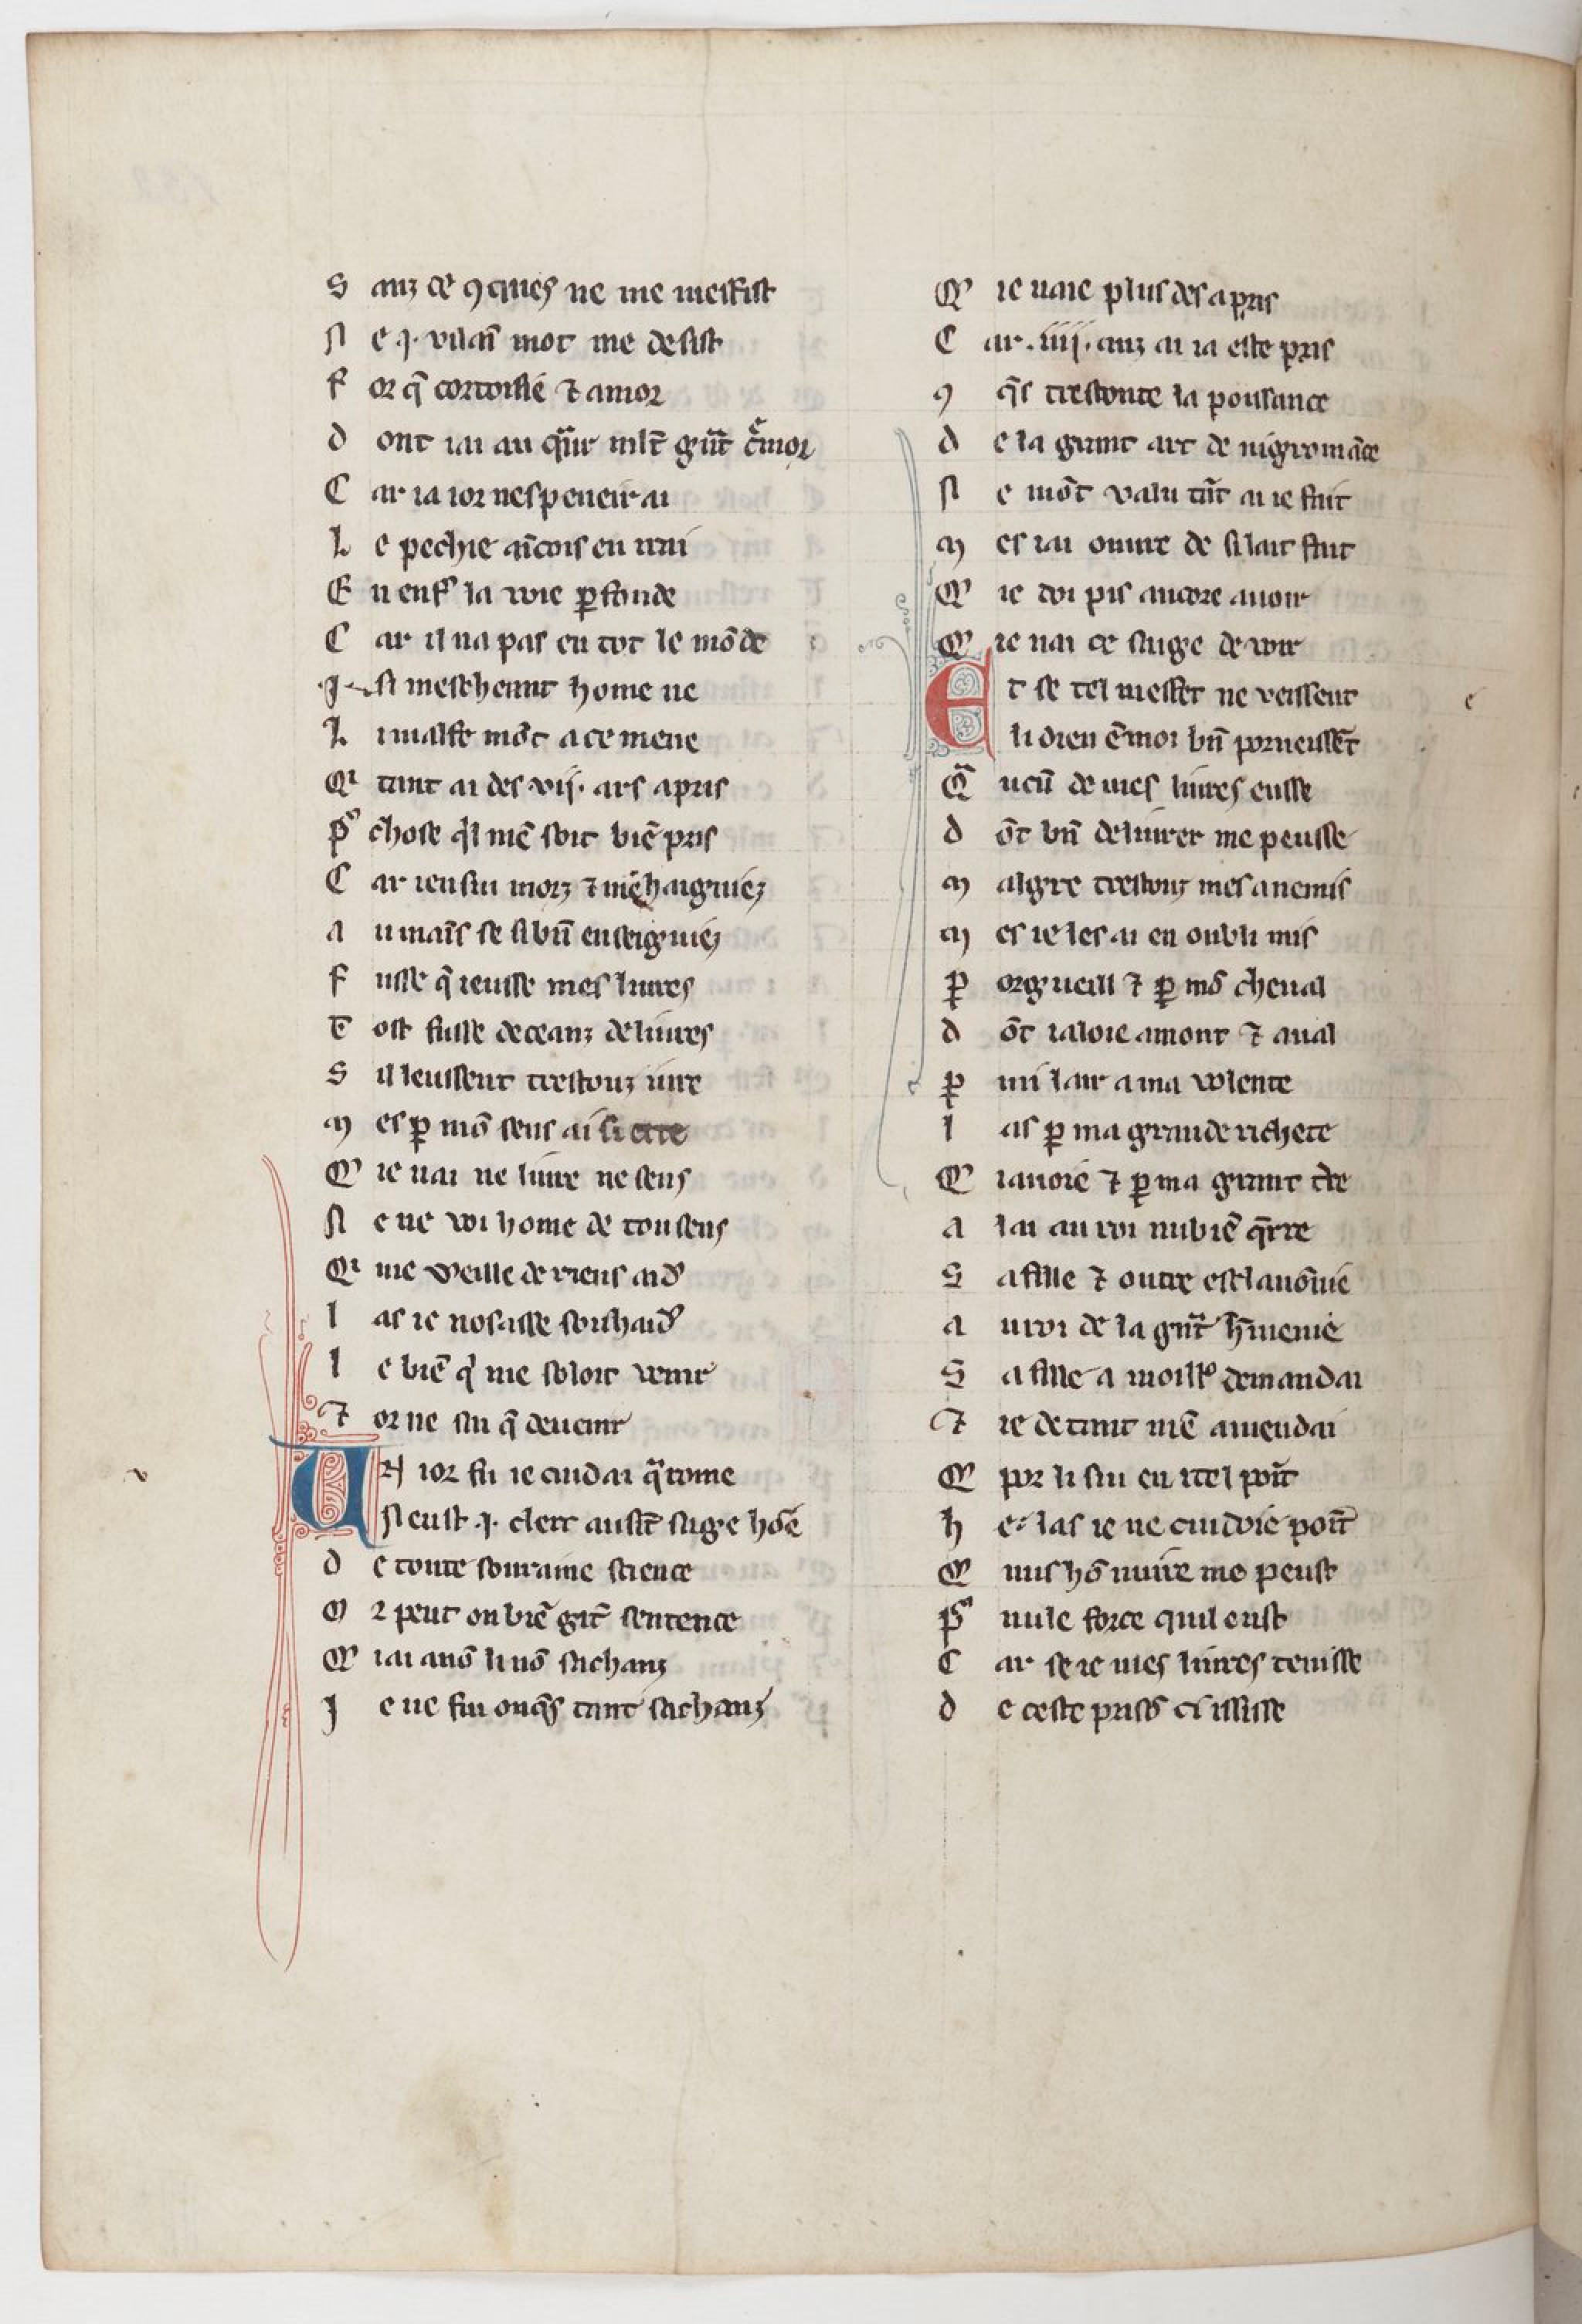 S anz ce ꝯques ne me meffist
N e .j. vilaī mot me desist
F or q̄ cortoisie ⁊ amor
d ont iai au qͣur mlt̄ gͣnt c̄mor
C ar ia ior nespeneirai
L e pechie aīcois en irai
E n enfˀ la voie ꝑfonde
C ar il na pas en tot le mōde
.j. si mescheant home ne
L i malfe mōt a ce mene
Qi tant ai des .vij. ars apris
Pˀ chose qͥl mē soit biē pris
C ar ien sui morz ⁊ mehaigniez
a u mais se si bn̄ enseigniez
F usse q̄ ieusse mes liures
T ost fusse de ceanz deliures
S il leussent trestouz iure
M es ꝑ mō sens ai si erre
Qˀ ie nai ne liure ne sens
N e ne voi home de tou sens
Qi me veille de riens aidˀ
l as ie nosasse souhaidˀ
l e biē qͥ me soloit venir
⁊ or ne sai q̄ deuenir
U N ior fu ie cuidai qͣ rome
N eust .j. clerc ausit̄ sage hōe
d e toute souraine science
O r peut on biē git̄ sentence
Qˀ iai anō li nō sachanz
J e ne fui onq̄s tant sachanz
Qˀ ie naie plus des apris
C ar .iiij. anz ai ia este pris
ꝯ q̄s trestoute la poissance
d e la grant art de nigromāce
N e mōt valu tāt ai ie fait
M es iai ouure de si lait fait
Qˀ ie doi pis ancore auoir
Qˀ ie nai ce sai ge de voir
E t se tel meffet ne veissent
li dieu ē moi bn̄ porueissēt
Qͣ ucū de mes liures eusse
d ōt bn̄ deliurer me peusse
M algre trestouz mes anemis
M es ie les ai en oubli mis
ꝑ orgueill ⁊ ꝑ mō cheual
d ōt ialoie amont ⁊ aual
ꝑ mi lair a ma volente
l as ꝑ ma grande richete
Qˀ iauoie ⁊ ꝑ ma grant tˀre
a lai au roi nubiē q̄rre
S a fille ⁊ outre esclauōnie
a u roi de la gͣnt h̄menie
S a fille a moillˀ demandai
⁊ ie de tant mē amendai
Qˀ por li sui en itel poīt
h e las ie ne cuidoie poīt
Qˀ nus hō nuire me peust
Pˀ nule force quil eust
C ar se ie mes liures tenisse
d e ceste prisō cˀ ississe
v
e